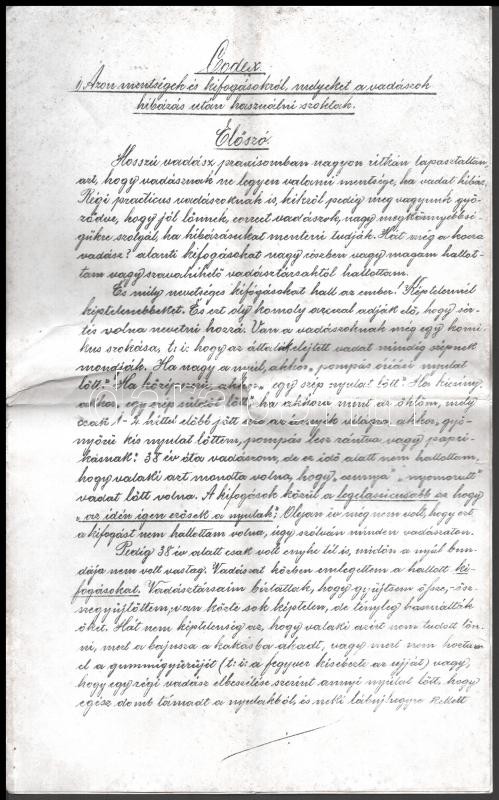 Codex.
1) Azon mentségek és kifogásokról, melyeket a vadászok
hibázás után használni szoktak.
Előszó.
Hosszú vadász praxisomban nagyon ritkán tapasztaltam
azt, hogy vadásznak ne legyen valami mentsége, ha vadat hibáz.
Régi practicus vadászoknak is, kikről pedig meg vagyunk győ-
ződve, hogy jól lőnek, correct vadászok, nagy megkönnyebbsé-
gükre szolgál, ha hibázásukat menteni tudják. Hát még a kocza
vadász? alanti kifogásokat nagy részben vagy magam hallot-
tam vagy szavahihető vadásztársaktól hallottam.
És mily nevetséges kifogásokat hall az ember! Képtelennél
képtelenebbeket. És ezt oly komoly arczal adják elő, hogy sér-
tés volna nevetni hozzá. Van a vadászoknak még egy komi-
kus szokása, t. i: hogy az általuk elejtett vadat mindig szépnek
mondják. Ha nagy a nyúl, akkor „pompás óriási nyulat
lőtt." Ha középszerű, akkor „egy szép nyulat lőtt" Ha kicsiny,
akkor „egy szép süldőt lőtt", ha akkora mint az öklöm, mely
csak 1-2 héttel előbb jött erre az árnyék világra, akkor „gyö-
nyörű kis nyulat lőttem, pompás lesz rántva vagy papri-
kásnak". 38 év óta vadászom, de ez idő alatt nem hallottam,
hogy valaki azt mondta volna, hogy „csunya" „nyomorult"
vadat lőtt volna. A kifogások közül a legclassicusabb ez hogy
„az idén igen erősek a nyulak"; Olyan év még nem volt, hogy ezt
a kifogást nem hallottam volna, úgy szólván minden vadászaton.
Pedig 38 év alatt csak volt enyhe tél is, midőn a nyúl bun-
dája nem volt vastag. Vadászat közben emlegettem a hallott ki-
fogásokat. Vadásztársaim biztattak, hogy gyűjtsem össze,-ösz-
szegyűjtöttem, van közte sok képtelen, de tényleg használták
őket. Hát nem képtelenség az, hogy valaki azért nem tudott lőn-
ni, mert a bajusza a kakasba akadt, vagy mert nem hozta
el a gummigyűrűjét (t: i: a fegyver kisebezte az ujját) vagy,
hogy egy régi vadász elbeszélése szerint annyi nyulat lőtt, hogy
egész domb támadt a nyulakból, és neki lábujjhegyre kellett